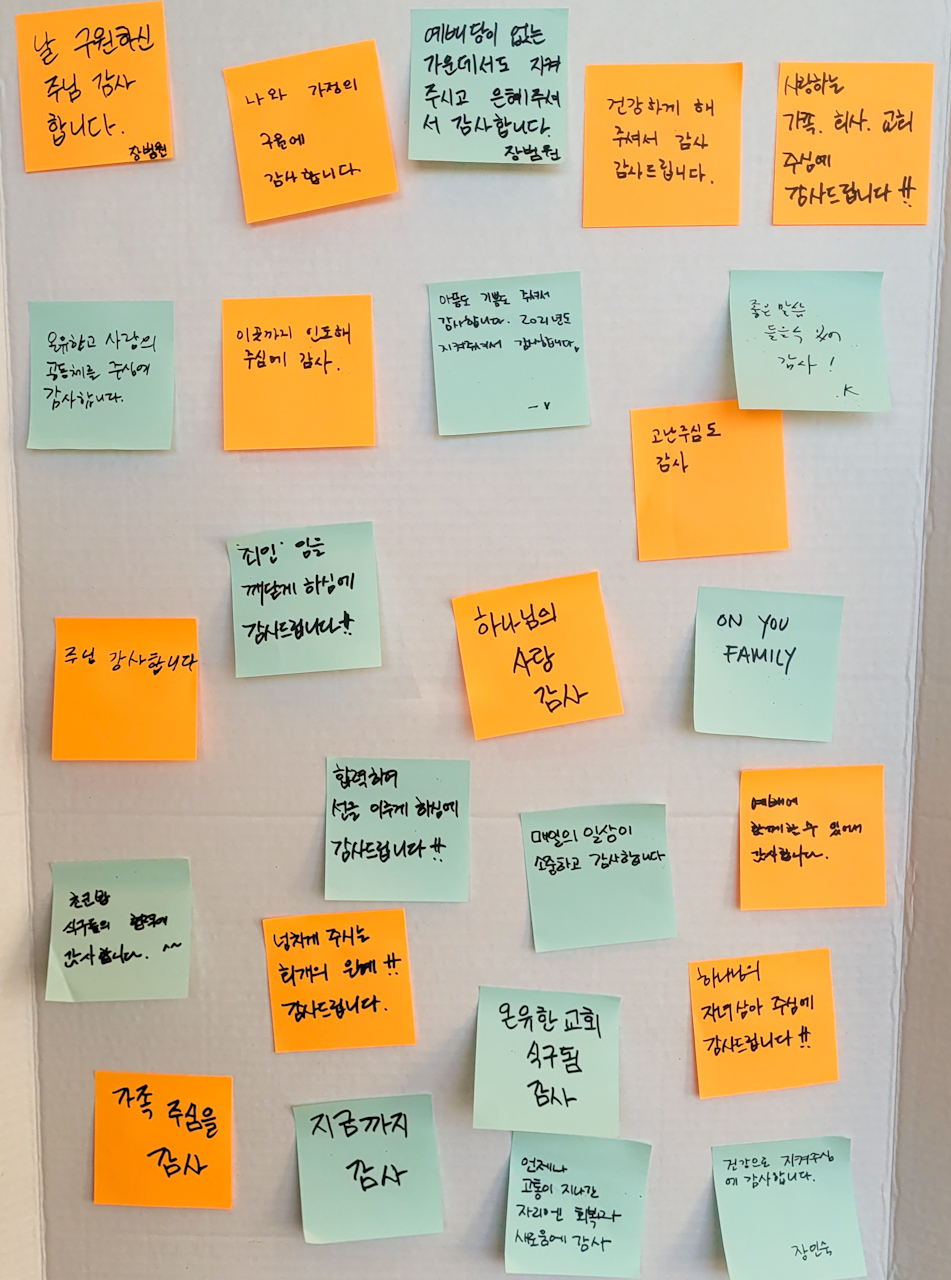 날 구원하신
주님 감사
합니다.
장범원
나와 가정의
구원에
감사합니다
예배당이 없는
가운데서도 지켜
주시고 은혜주셔
서 감사합니다.
장범원
건강하게 해
주셔서 감사
감사드립니다.
사랑하는
가족. 회사. 교회
주심에
감사드립니다!!
온유하고 사랑의
공동체를 주심에
감사합니다.
이곳까지 인도해
주심에 감사.
아픔도 기쁨도 주셔서
감사합니다. 2021년도
지켜주셔서 감사합니다.
좋은 말씀
들을수 있어
감사!
.K
고난주심도
감사
'죄인' 임을
깨닫게 하심에
감사드립니다!!
주님 감사합니다
하나님의
사랑
감사
ON YOU
FAMILY
합력하여
선을 이루게 하심에
감사드립니다!!
매일의 일상이
소중하고 감사합니다
예배에
함께할 수 있어서
감사합니다.
초코밥
식구들의 함께에
감사합니다. ^^
넘치게 주시는
회개의 은혜!!
감사드립니다.
하나님의
자녀삼아 주심에
감사드립니다!!
온유한 교회
식구됨
감사
가족 주심을
감사
지금까지
감사
언제나
고통이 지나간
자리엔 회복과
새로움에 감사
건강으로 지켜주심
에 감사합니다.
장인숙